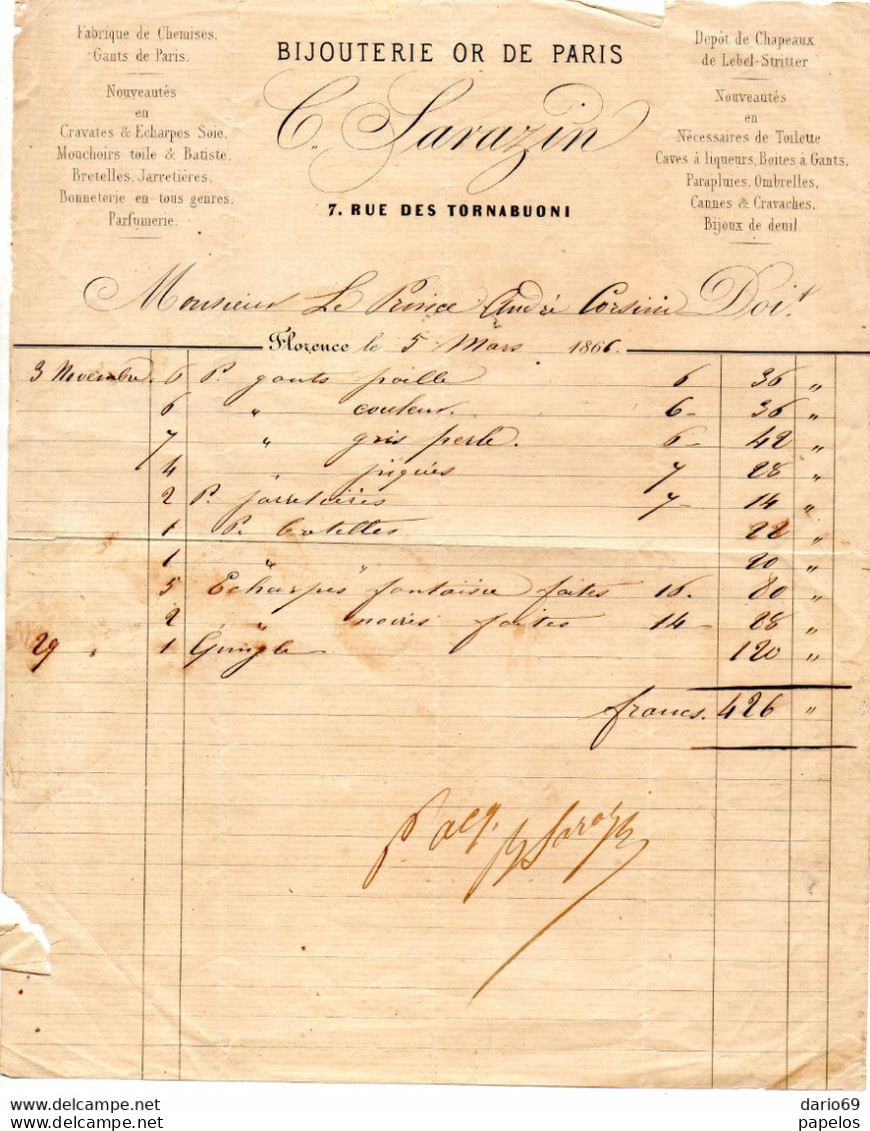 Fabrique de Chemises,
Gants de Paris.
Nouveautés
en
Cravates & Echarpes Soie,
Mouchoirs toile & Batiste,
Bretelles, Jarretières,
Bonneterie en tous genres,
Parfumerie.
BIJOUTERIE OR DE PARIS
C. Sarazin
7. RUE DES TORNABUONI
Depôt de Chapeaux
de Lebel-Stritter
Nouveautés
en
Nécessaires de Toilette
Caves à liqueurs, Boites à Gants,
Parapluies, Ombrelles,
Cannes & Cravaches,
Bijoux de deuil.
Monsieur Le Prince André Corsini Doit
Florence le 5 Mars 1866.
3 Novembre. 6 P. gants paille 6 36 "
6 " couleur. 6- 36 "
7 " gris perle. 6- 42 "
4 " piqués 7 28 "
2 P. jarretières 7- 14 "
1 P. 22 "
1 " 20 "
5 Echarpes fantaisie faites 16. 80 "
2 " noires faites 14- 28 "
29 " 1 120 "
francs. 426 "
p acq.
dario69
papelos